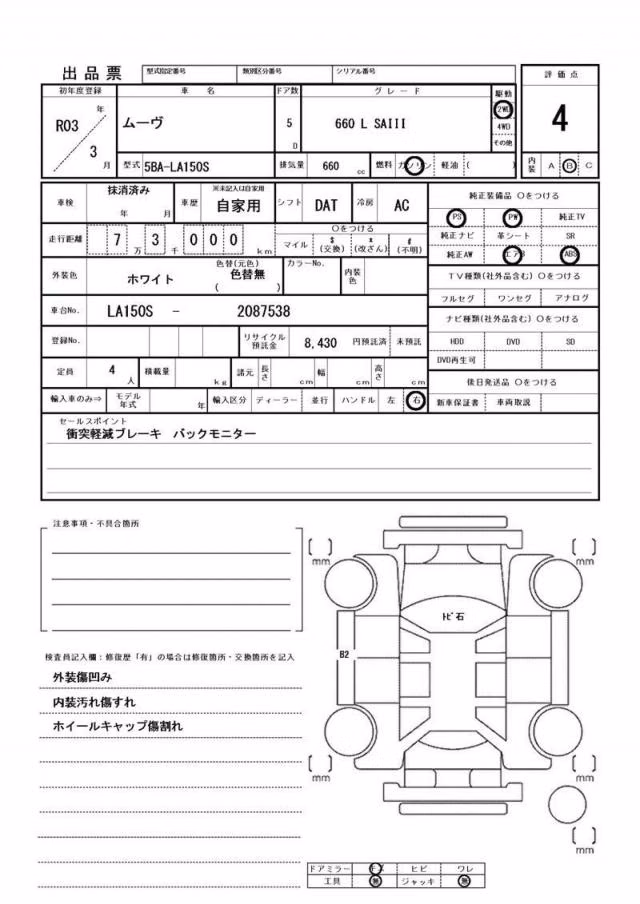 出品票 型式指定番号 類別区分番号 シリアル番号
初年度登録 車名 ドア数 グレード 駆動 評価点
R03 年 3 月 ムーヴ 5 D 660 L SAIII 2WD 4WD その他 4
型式 5BA-LA150S 排気量 660 cc 燃料 ガソリン 軽油 ( ) 内装 A B C
車検 抹消済み 年 月 車歴 ※未記入は自家用 自家用 シフト DAT 冷房 AC 純正装備品 ○をつける
PS PW 純正TV
走行距離 7 万 3 千 0 0 0 km ○をつける マイル $ (交換) x (改ざん) # (不明) 純正ナビ 革シート SR
純正AW エアB ABS
外装色 ホワイト 色替(元色) 色替無 ( ) カラーNo. 内装色 TV種類(社外品含む) ○をつける
フルセグ ワンセグ アナログ
車台No. LA150S - 2087538 ナビ種類(社外品含む) ○をつける
登録No. リサイクル預託金 8,430 円預託済 未預託 HDD DVD SD
DVD再生可
定員 4 人 積載量 kg 諸元 長さ cm 幅 cm 高さ cm 後日発送品 ○をつける
輸入車のみ⇒ モデル年式 年 輸入区分 ディーラー 並行 ハンドル 左 右 新車保証書 車両取説
セールスポイント
衝突軽減ブレーキ バックモニター
注意事項・不具合箇所
検査員記入欄：修復歴「有」の場合は修復箇所・交換箇所を記入
外装傷凹み
内装汚れ傷すれ
ホイールキャップ傷割れ
[ ] mm [ ] mm
ﾄﾋﾞ石
B2
[ ] mm [ ] mm
[ ] mm
ドアミラー キズ ヒビ ワレ
工具 無 ジャッキ 無